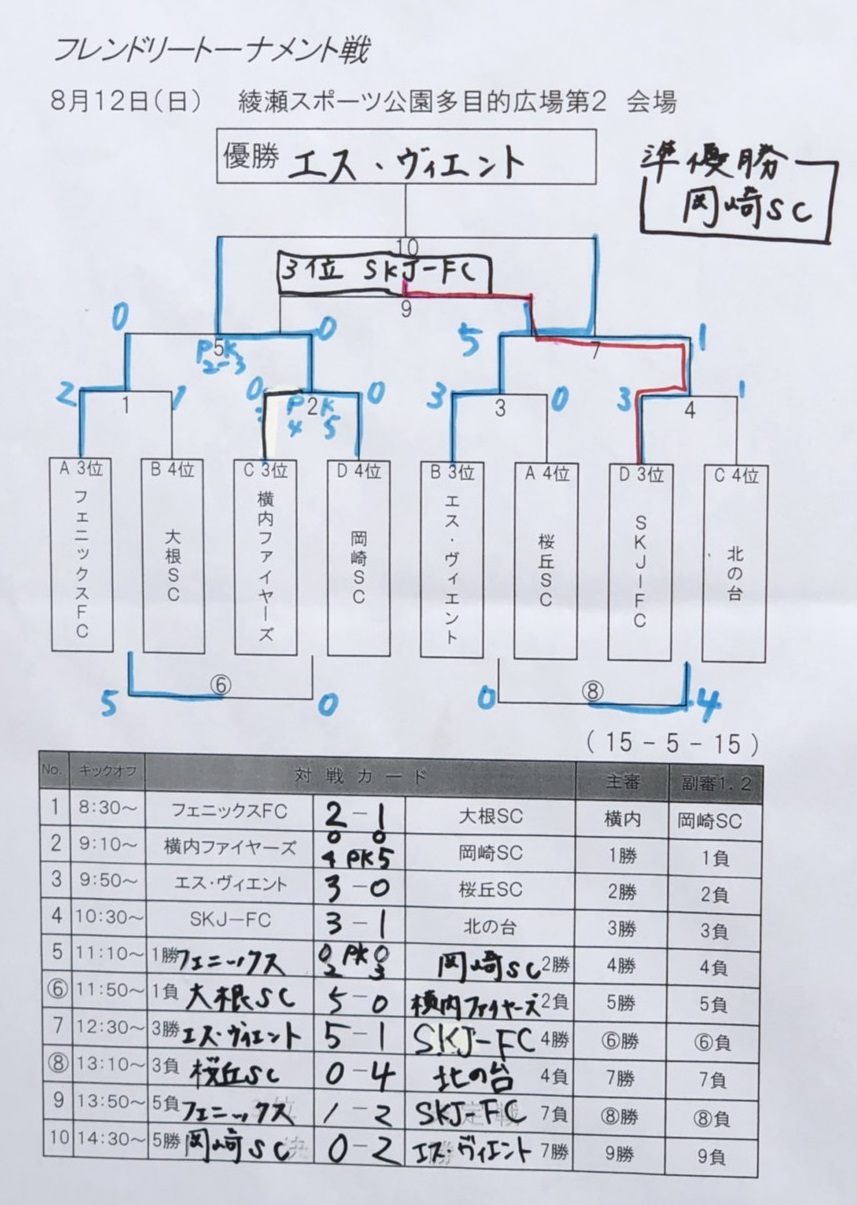 フレンドリートーナメント戦
8月12日(日) 綾瀬スポーツ公園多目的広場第2 会場
優勝 エス・ヴィエント
準優勝
岡崎SC
10
3位 SKJ-FC
9
0 5 0 5 7 1
PK
2-3
2 1 1 0 PK 2 0 3 3 0 3 4 1
4 5
A 3位 B 4位 C 3位 D 4位 B 3位 A 4位 D 3位 C 4位
フェニックスFC
大根SC
横内ファイヤーズ
岡崎SC
エス・ヴィエント
桜丘SC
SKJ-FC
北の台
5 ⑥ 0 0 ⑧ 4
(15-5-15)
No. キックオフ 対戦カード 主審 副審1.2
1 8:30~ フェニックスFC 2-1 大根SC 横内 岡崎SC
2 9:10~ 横内ファイヤーズ 0 0 4 PK 5 岡崎SC 1勝 1負
3 9:50~ エス・ヴィエント 3-0 桜丘SC 2勝 2負
4 10:30~ SKJ-FC 3-1 北の台 3勝 3負
5 11:10~ 1勝 フェニックス 0 PK 0 2 3 岡崎SC 2勝 4勝 4負
⑥ 11:50~ 1負 大根SC 5-0 横内ファイヤーズ 2負 5勝 5負
7 12:30~ 3勝 エス・ヴィエント 5-1 SKJ-FC 4勝 ⑥勝 ⑥負
⑧ 13:10~ 3負 桜丘SC 0-4 北の台 4負 7勝 7負
9 13:50~ 5負 フェニックス 1-2 SKJ-FC 7負 ⑧勝 ⑧負
10 14:30~ 5勝 岡崎SC 0-2 エス・ヴィエント 7勝 9勝 9負